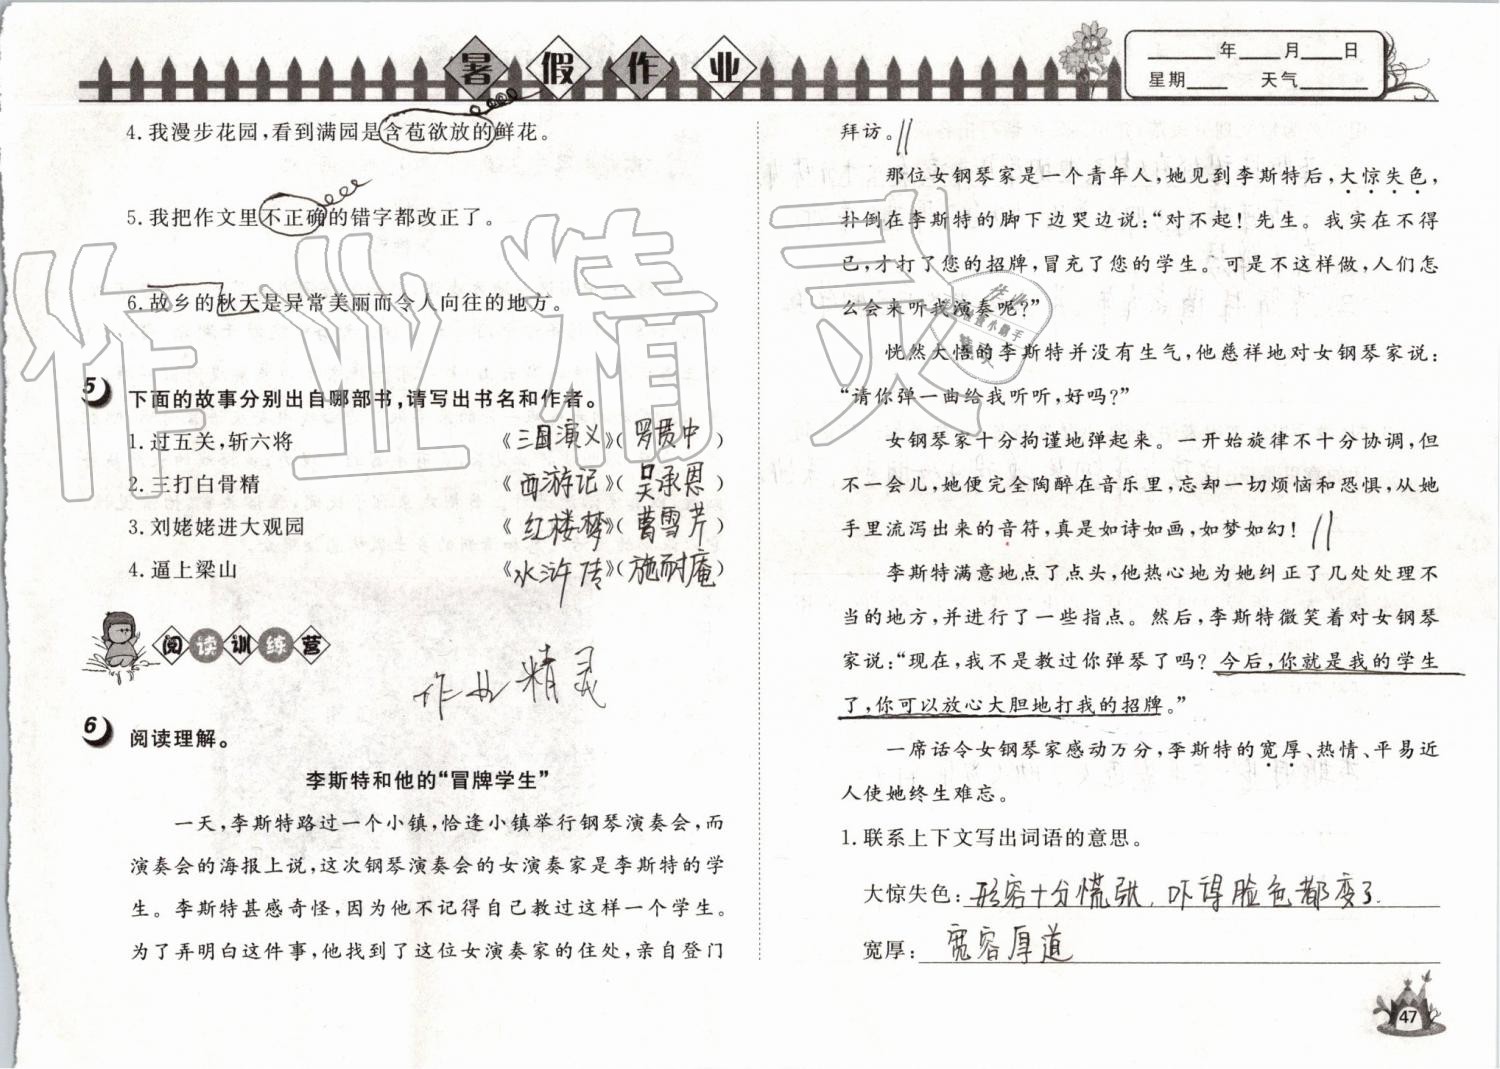 暑假作业
____年___月___日
星期____ 天气______
4.我漫步花园,看到满园是含苞欲放的鲜花。
5.我把作文里不正确的错字都改正了。
6.故乡的秋天是异常美丽而令人向往的地方。
5 下面的故事分别出自哪部书,请写出书名和作者。
1.过五关,斩六将 《三国演义》(罗贯中)
2.三打白骨精 《西游记》(吴承恩)
3.刘姥姥进大观园 《红楼梦》(曹雪芹)
4.逼上梁山 《水浒传》(施耐庵)
阅读训练营
作业精灵
6 阅读理解。
李斯特和他的“冒牌学生”
一天,李斯特路过一个小镇,恰逢小镇举行钢琴演奏会,而
演奏会的海报上说,这次钢琴演奏会的女演奏家是李斯特的学
生。李斯特甚感奇怪,因为他不记得自己教过这样一个学生。
为了弄明白这件事,他找到了这位女演奏家的住处,亲自登门
拜访。
那位女钢琴家是一个青年人,她见到李斯特后,大惊失色,
扑倒在李斯特的脚下边哭边说:“对不起!先生。我实在不得
已,才打了您的招牌,冒充了您的学生。可是不这样做,人们怎
么会来听我演奏呢?”
恍然大悟的李斯特并没有生气,他慈祥地对女钢琴家说:
“请你弹一曲给我听听,好吗?”
女钢琴家十分拘谨地弹起来。一开始旋律不十分协调,但
不一会儿,她便完全陶醉在音乐里,忘却一切烦恼和恐惧,从她
手里流泻出来的音符,真是如诗如画,如梦如幻!
李斯特满意地点了点头,他热心地为她纠正了几处处理不
当的地方,并进行了一些指点。然后,李斯特微笑着对女钢琴
家说:“现在,我不是教过你弹琴了吗?今后,你就是我的学生
了,你可以放心大胆地打我的招牌。”
一席话令女钢琴家感动万分,李斯特的宽厚、热情、平易近
人使她终生难忘。
1.联系上下文写出词语的意思。
大惊失色:形容十分慌张,吓得脸色都变了.
宽厚:宽容厚道
47
作业精灵